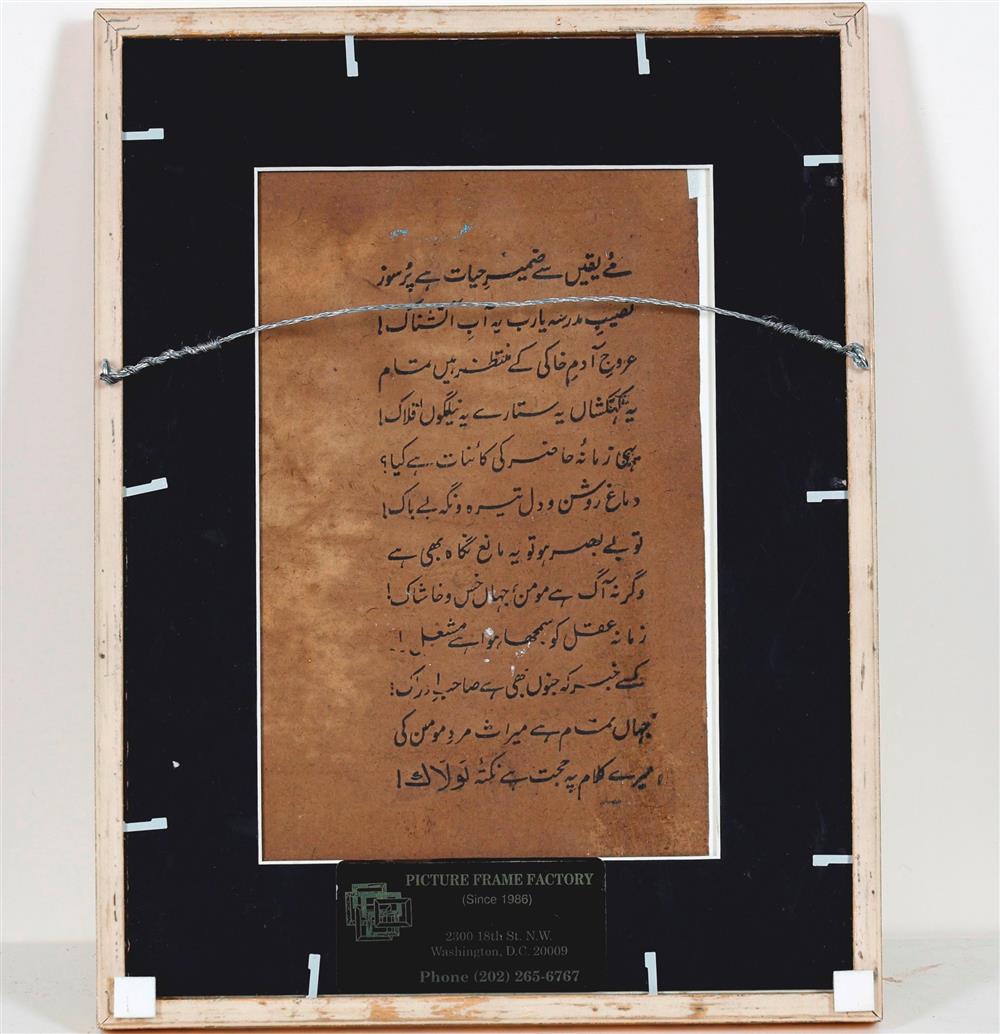 مئے یقیں سے ضمیرِ حیات ہے پُرسوز
نصیبِ مدرسہ یارب یہ آبِ آتشناک!
عروجِ آدمِ خاکی کے منتظر ہیں تمام
یہ کہکشاں یہ ستارے یہ نیلگوں افلاک!
یہی زمانۂ حاضر کی کائنات ہے کیا؟
دماغ روشن و دل تیرہ و نگہ بے باک!
تو بے بصر ہو تو یہ مانع نگاہ بھی ہے
وگرنہ آگ ہے مومن جہاں خس و خاشاک!
زمانہ عقل کو سمجھا ہوا ہے مشعل !!
کسے خبر کہ جنوں بھی ہے صاحبِ ادراک!
جہاں تمام ہے میراث مردِ مومن کی
میرے کلام پہ حجت ہے نکتۂ لَولَاک!
PICTURE FRAME FACTORY
(Since 1986)
2300 18th St. N.W.
Washington, D.C. 20009
Phone (202) 265-6767